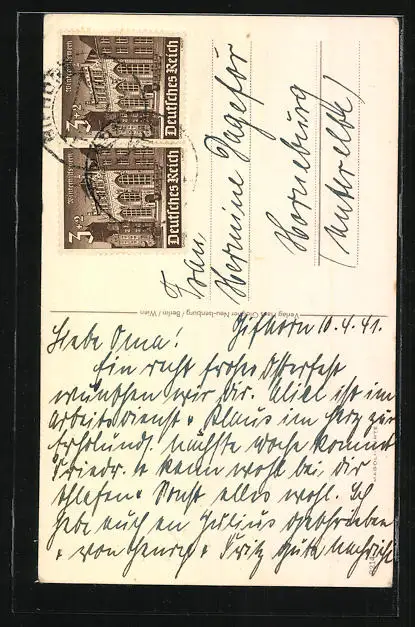 Winterhilfswerk
3+2
Deutsches Reich
3+2
Deutsches Reich
Frau
Hermine Jagefor
Horneburg
(Unterelbe)
Verlag Hans Neu-Isenburg / Berlin / Wien
Gifhorn 10.4.41.
Liebe Oma!
Ein recht frohes Osterfest
wünschen wir dir. ist im
Arbeitsdienst. Klaus im Harz zur
Erholung. Nächste Woche kommt
Friedr. u. kann wohl bei dir
schlafen. Sonst alles wohl. Ich
habe auch an Julius geschrieben
von Fritz gute Nachricht